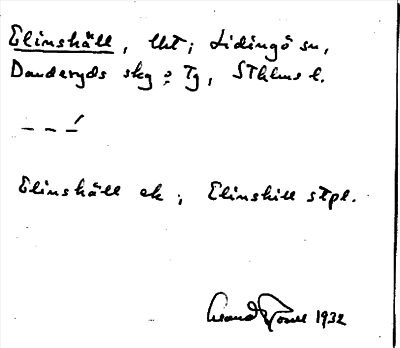 Elinshäll, lht; Lidingö sn,
Danderyds skg o Tg, Sthlms l.
— — —́
Elinshäll ek; Elinshill stpl.
1932